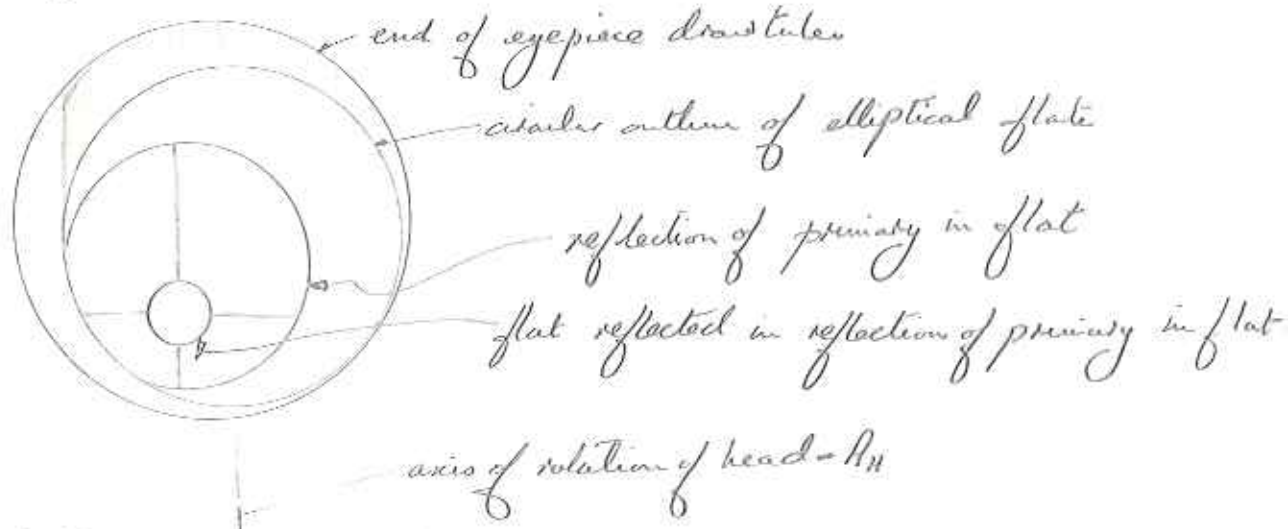 end of eyepiece drawtube
circular outline of elliptical flat
reflection of primary in flat
flat reflected in reflection of primary in flat
axis of rotation of head = A_H